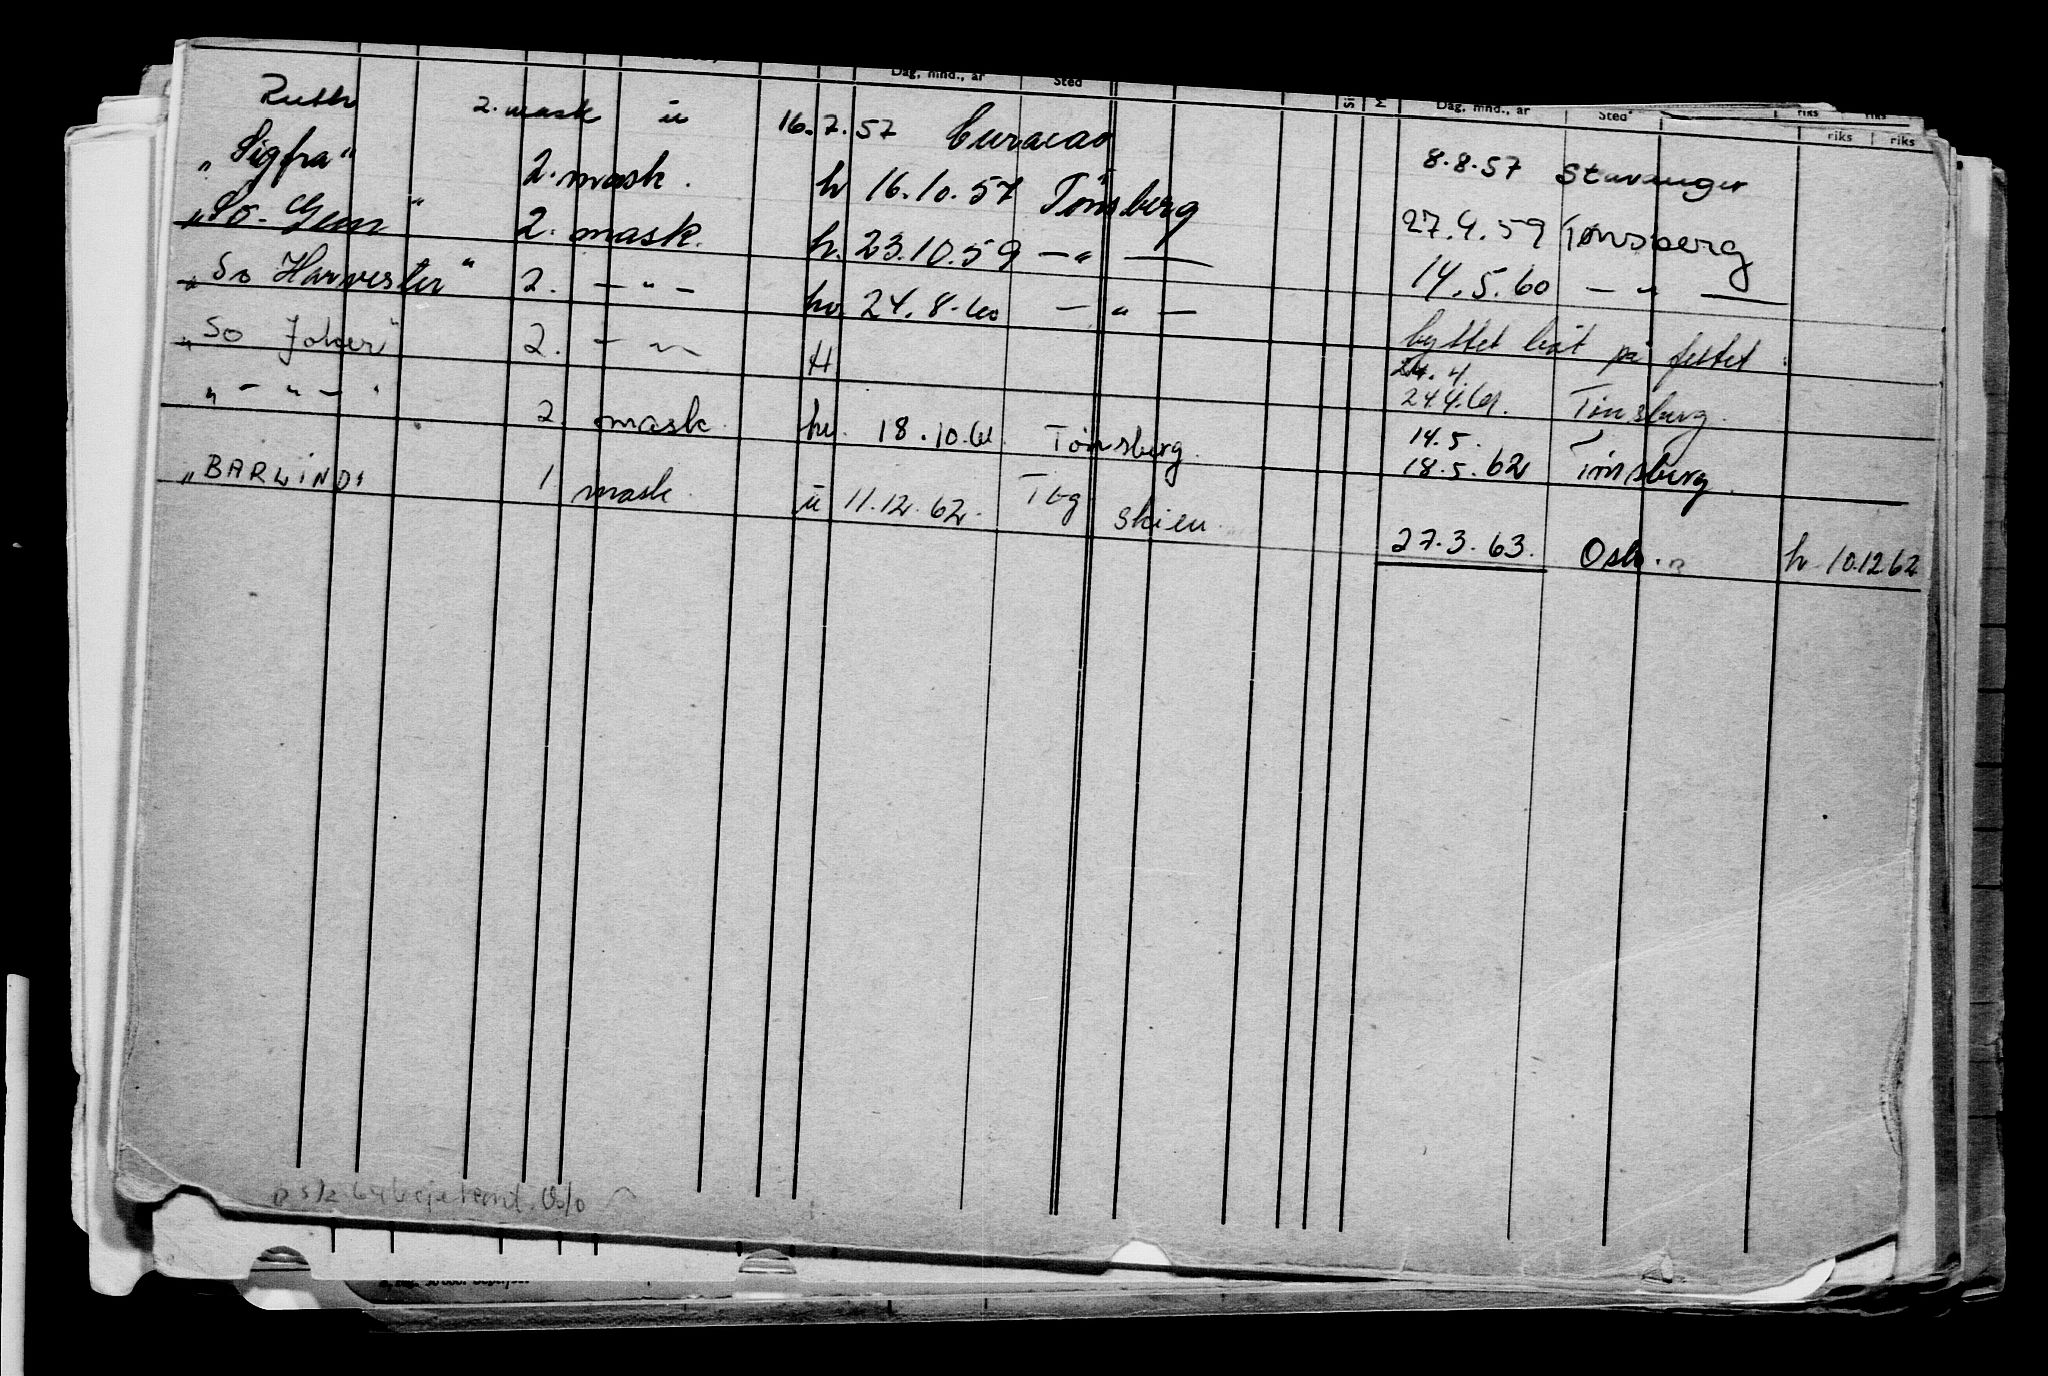 Dag, mnd., år Sted Dag, mnd., år Sted riks riks
riks riks
Ruth 2. mask ü 16.7.57 Curacao 8.8.57 Stavanger
"Sigfra" 2. mask. h 16.10.57 Tønsberg 27.4.59 Tønsberg
"So. Gem" 2. mask. h. 23.10.59 — " — 14.5.60 — " —
"So Harvester" 2. — " — hv 24.8.60 — " — byttet båt på feltet
24.4.
"So Joker" 2. — " — H 24.4.61. Tønsberg.
14.5.
" — " — " 2. mask. hv. 18.10.61. Tønsberg. 18.5.62 Tønsberg.
"BARLIND" 1 mask. ü 11.12.62. Tbg Skien. 27.3.63. Oslo. h 10.12.62
Oslo